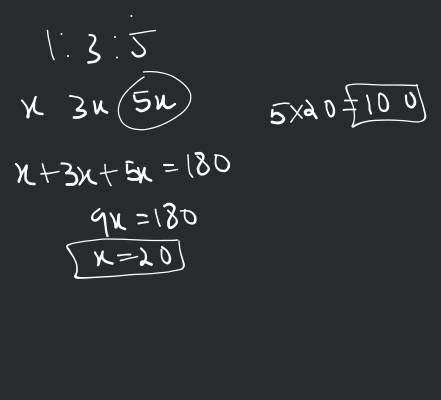 1:3:5
x 3x 5x
x+3x+5x=180
9x=180
x=20
5×20=100